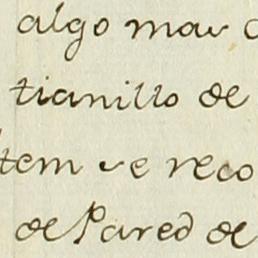 algo mas
tianillo de
Item se reco
de Pared de